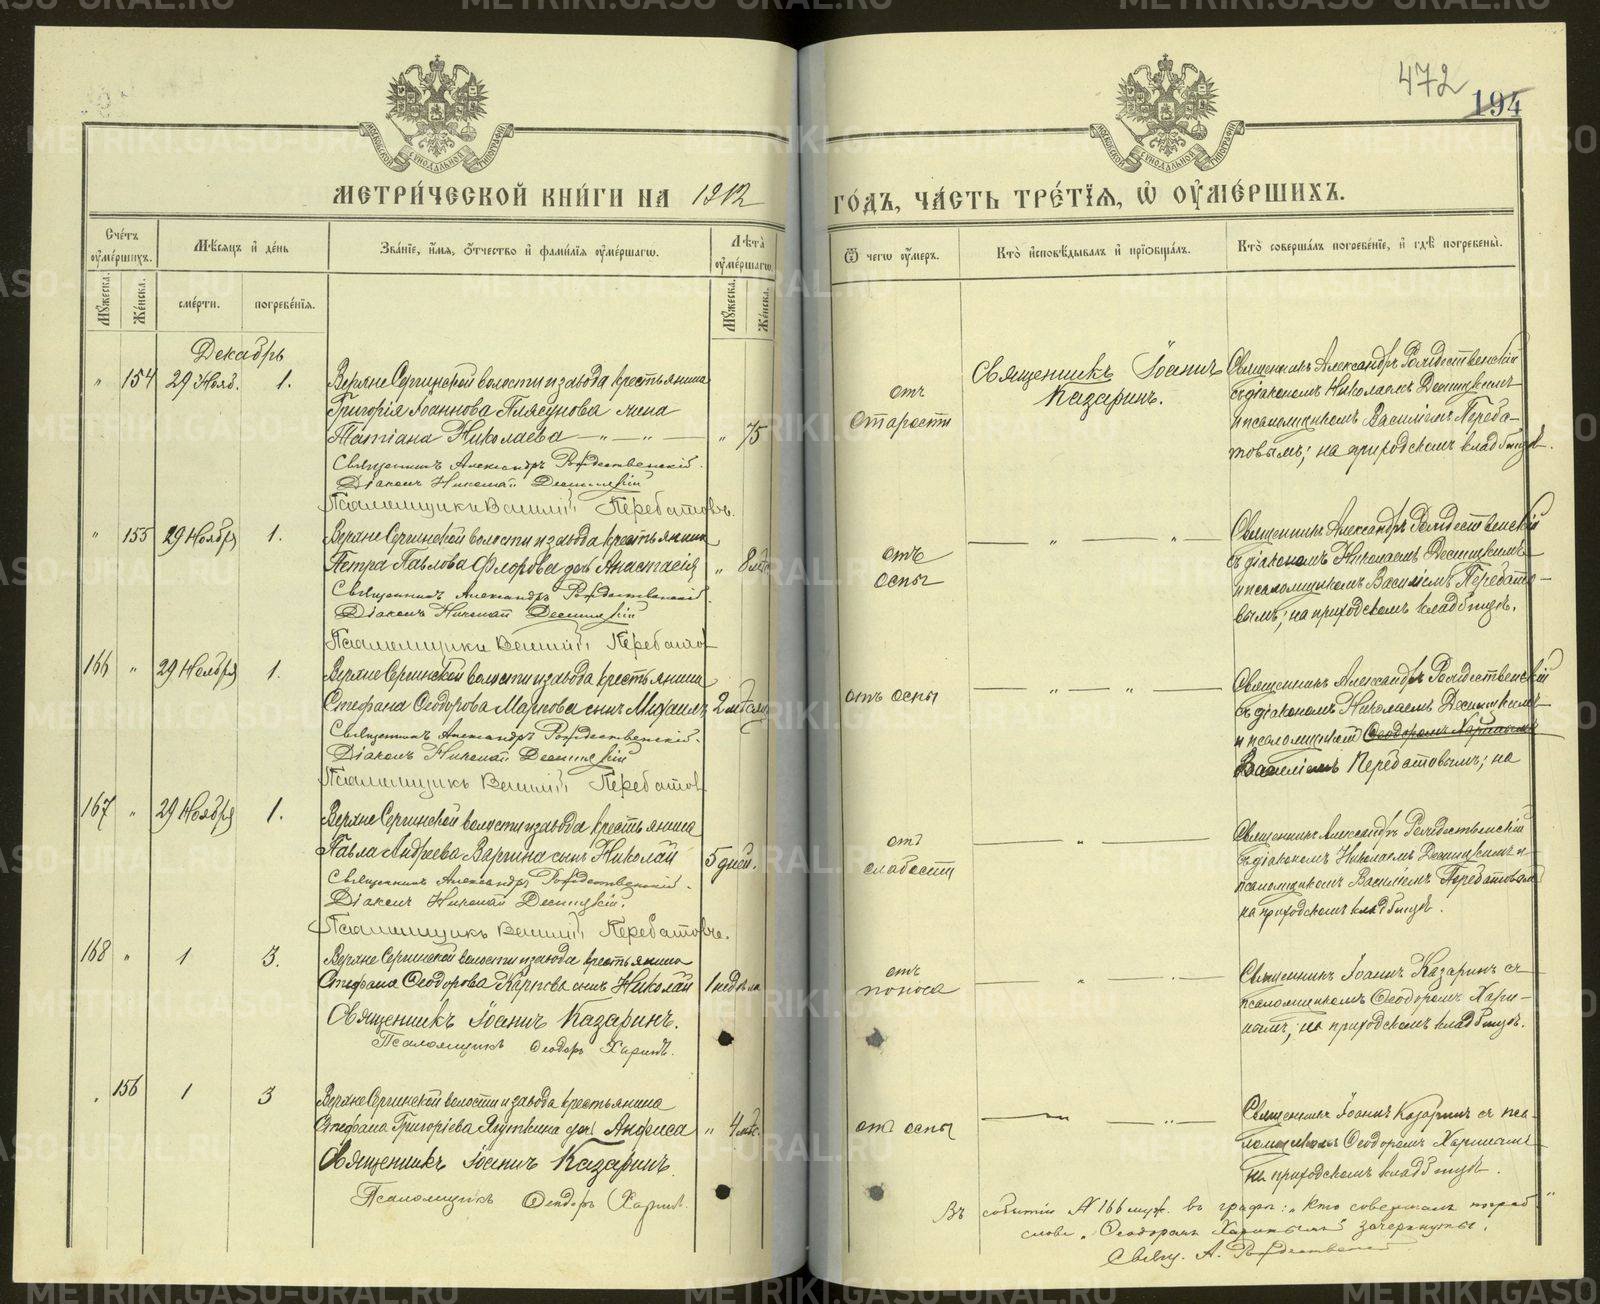 472
194
МЕТРИ́ЧЕСКОЙ КНИ́ГИ НА 1912
ГО́ДЪ, ЧА́СТЬ ТРЕ́ТЇѦ, Ѡ҆ ОУ҆МЕ́РШИХЪ.
Сче́тъ оу҆ме́ршихъ.
Мѣ́сѧцъ и҆ де́нь
Зва́нїе, и҆́мѧ, ѻ҆́тчество и҆ фами́лїѧ оу҆ме́ршагѡ.
Лѣ́та оу҆ме́ршагѡ.
Ѿ чегѡ̀ оу҆́меръ.
Кто̀ и҆сповѣ́дывалъ и҆ прїѻбща́лъ.
Кто̀ соверша́лъ погребе́нїе, и҆ гдѣ̀ погребены̀.
Мꙋ́жеска.
Же́нска.
сме́рти.
погребе́нїѧ.
Мꙋ́жеска.
Же́нска.
Декабрь
" 154 29 Нояб. 1.
Верхне Сергинской волости и завода крестьянина
Григорія Іоаннова Плясунова жена
Татіана Николаева — " — " —
" 75
Священникъ Александръ Рождественскій.
Діаконъ Николай Десницкій
Псаломщикъ Василій Перебатовъ.
отъ
старости
Священникъ Іоаннъ
Казаринъ.
Священникъ Александръ Рождественскій
съ діакономъ Николаемъ Десницкимъ
и псаломщикомъ Василіемъ Переба-
товымъ; на приходскомъ кладбищѣ.
" 155 29 Ноября 1.
Верхне Сергинской волости и завода крестьянина
Петра Павлова Флорова дочь Анастасія
" 8 мѣс.
Священникъ Александръ Рождественскій.
Діаконъ Николай Десницкій
Псаломщикъ Василій Перебатов
отъ
оспы
— " — " —
Священникъ Александръ Рождественскій
съ діакономъ Николаемъ Десницкимъ
и псаломщикомъ Василіемъ Перебато-
вымъ; на приходскомъ кладбищѣ.
166 " 29 Ноября 1.
Верхне Сергинской волости и завода крестьянина
Стефана Ѳеодорова сынъ Михаилъ
2
Священникъ Александръ Рождественскій.
Діаконъ Николай Десницкій
Псаломщикъ Василій Перебатов
отъ оспы
— " — " —
Священникъ Александръ Рождественскій
съ діакономъ Николаемъ Десницкимъ
и псаломщикомъ Ѳеодоромъ Харинымъ
Василіемъ Перебатовымъ; на
167 " 29 Ноября 1.
Верхне Сергинской волости и завода крестьянина
Павла Андреева Варгина сынъ Николай
5 дней.
Священникъ Александръ Рождественскій.
Діаконъ Николай Десницкій.
Псаломщикъ Василій Перебатовъ.
отъ
слабости
— " —
Священникъ Александръ Рождественскій
съ діакономъ Николаемъ Десницкимъ и
псаломщикомъ Василіемъ Перебатовымъ
на приходскомъ кладбищѣ.
168 " 1 3.
Верхне Сергинской волости и завода крестьянина
Стефана Ѳеодорова Карпова сынъ Николай
1 недѣля
Священникъ Іоаннъ Казаринъ.
Псаломщикъ Ѳеодоръ Харинъ.
отъ
поноса
— " — . —
Священникъ Іоаннъ Казаринъ съ
псаломщикомъ Ѳеодоромъ Хари-
нымъ; на приходскомъ кладбищѣ.
" 156 1 3
Верхне Сергинской волости и завода крестьянина
Стефана Григоріева дочь Анфиса
" 4 мѣс.
Священникъ Іоаннъ Казаринъ.
Псаломщикъ Ѳеодоръ Харинъ.
отъ оспы
— " — " —
Священникъ Іоаннъ Казаринъ съ пса-
ломщикомъ Ѳеодоромъ Харинымъ
на приходскомъ кладбищѣ.
Въ событіи № 166 муж. въ графѣ: „Кто совершалъ погреб."
слова „Ѳеодоромъ Харинымъ" зачеркнуты.
Свящ. А. Рождественскій